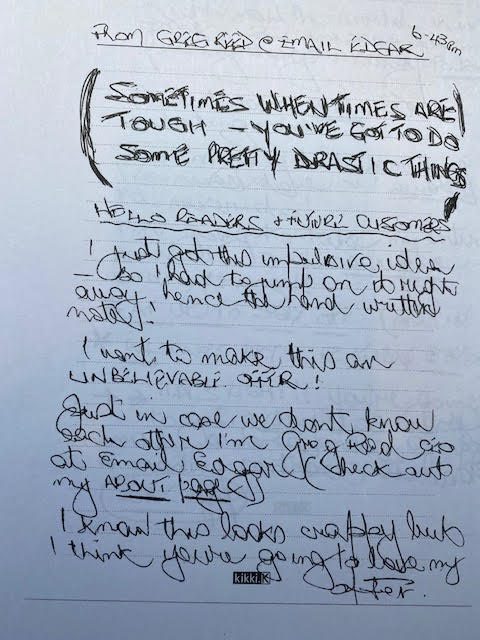 FROM GREG REED @ EMAIL EDGAR 6-43am
SOMETIMES WHEN TIMES ARE
TOUGH - YOU'VE GOT TO DO
SOME PRETTY DRASTIC THINGS
HELLO READERS + FUTURE CUSTOMERS
I just got this impulsive idea
- so I had to jump on it right
away hence the hand written
notes!
I want to make this an
UNBELIEVABLE OFFER!
(Just in case we don't know
each other I'm Greg Reed
at Email Edgar (check out
my ABOUT page)
I know this looks crappy but
I think you're going to love my
offer.
kikki.K